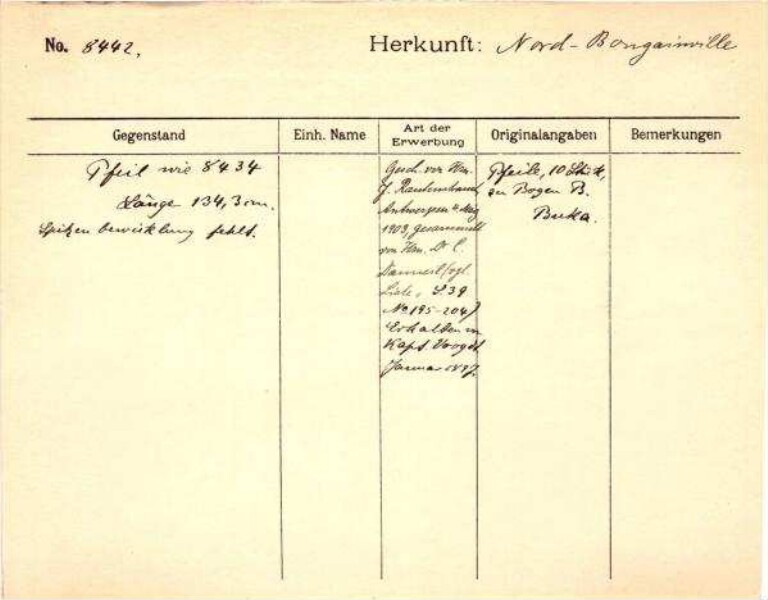 No. 8442. Herkunft: Nord-Bougainville
Gegenstand Einh. Name Art der Erwerbung Originalangaben Bemerkungen
Pfeil wie 8434
Länge 134,3 cm.
Spitzenbewicklung fehlt.
Gesch. von Hrn.
J.
Antwerpen
1903, gesammelt
von Hrn. Dr. C.
(vgl.
Liste, S. 39
No 195-204)
Erhalten v.
Kapt. Voogdt
Januar 1897.
Pfeile, 10 Stück,
zu Bogen B.
Buka.